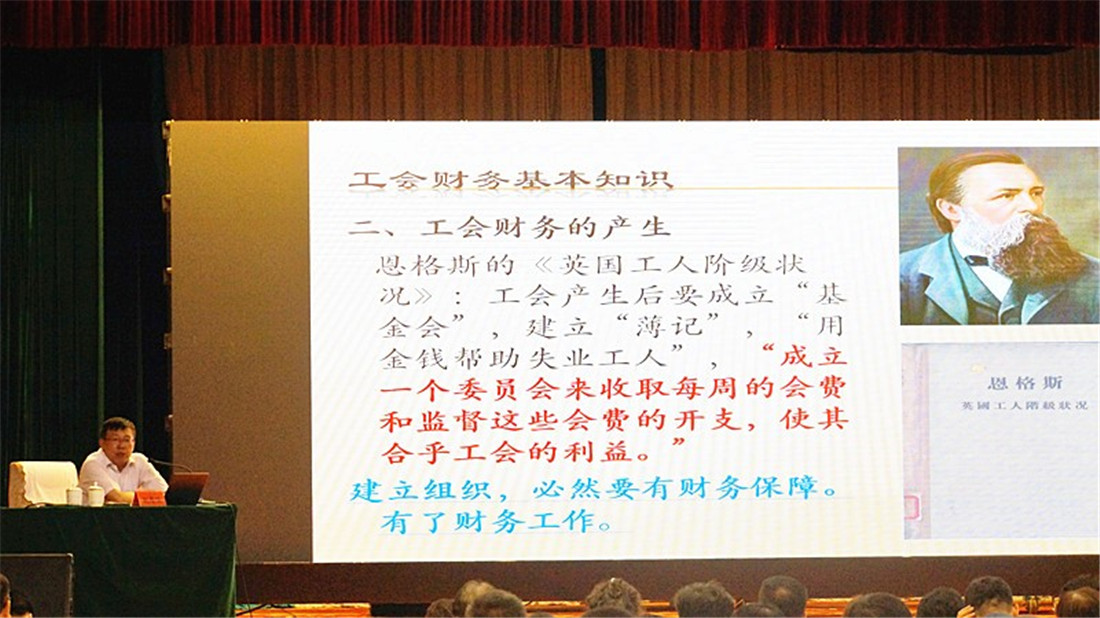 工会财务基本知识
二、工会财务的产生
恩格斯的《英国工人阶级状
况》：工会产生后要成立“基
金会”，建立“薄记”，“用
金钱帮助失业工人”，“成立
一个委员会来收取每周的会费
和监督这些会费的开支，使其
合乎工会的利益。”
建立组织，必然要有财务保障。
有了财务工作。
恩格斯
英國工人階級狀况